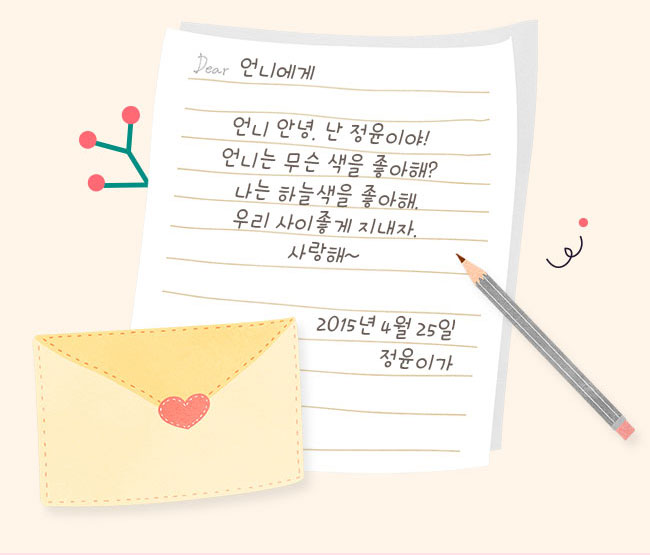 Dear 언니에게
언니 안녕. 난 정윤이야!
언니는 무슨 색을 좋아해?
나는 하늘색을 좋아해.
우리 사이좋게 지내자.
사랑해~
2015년 4월 25일
정윤이가